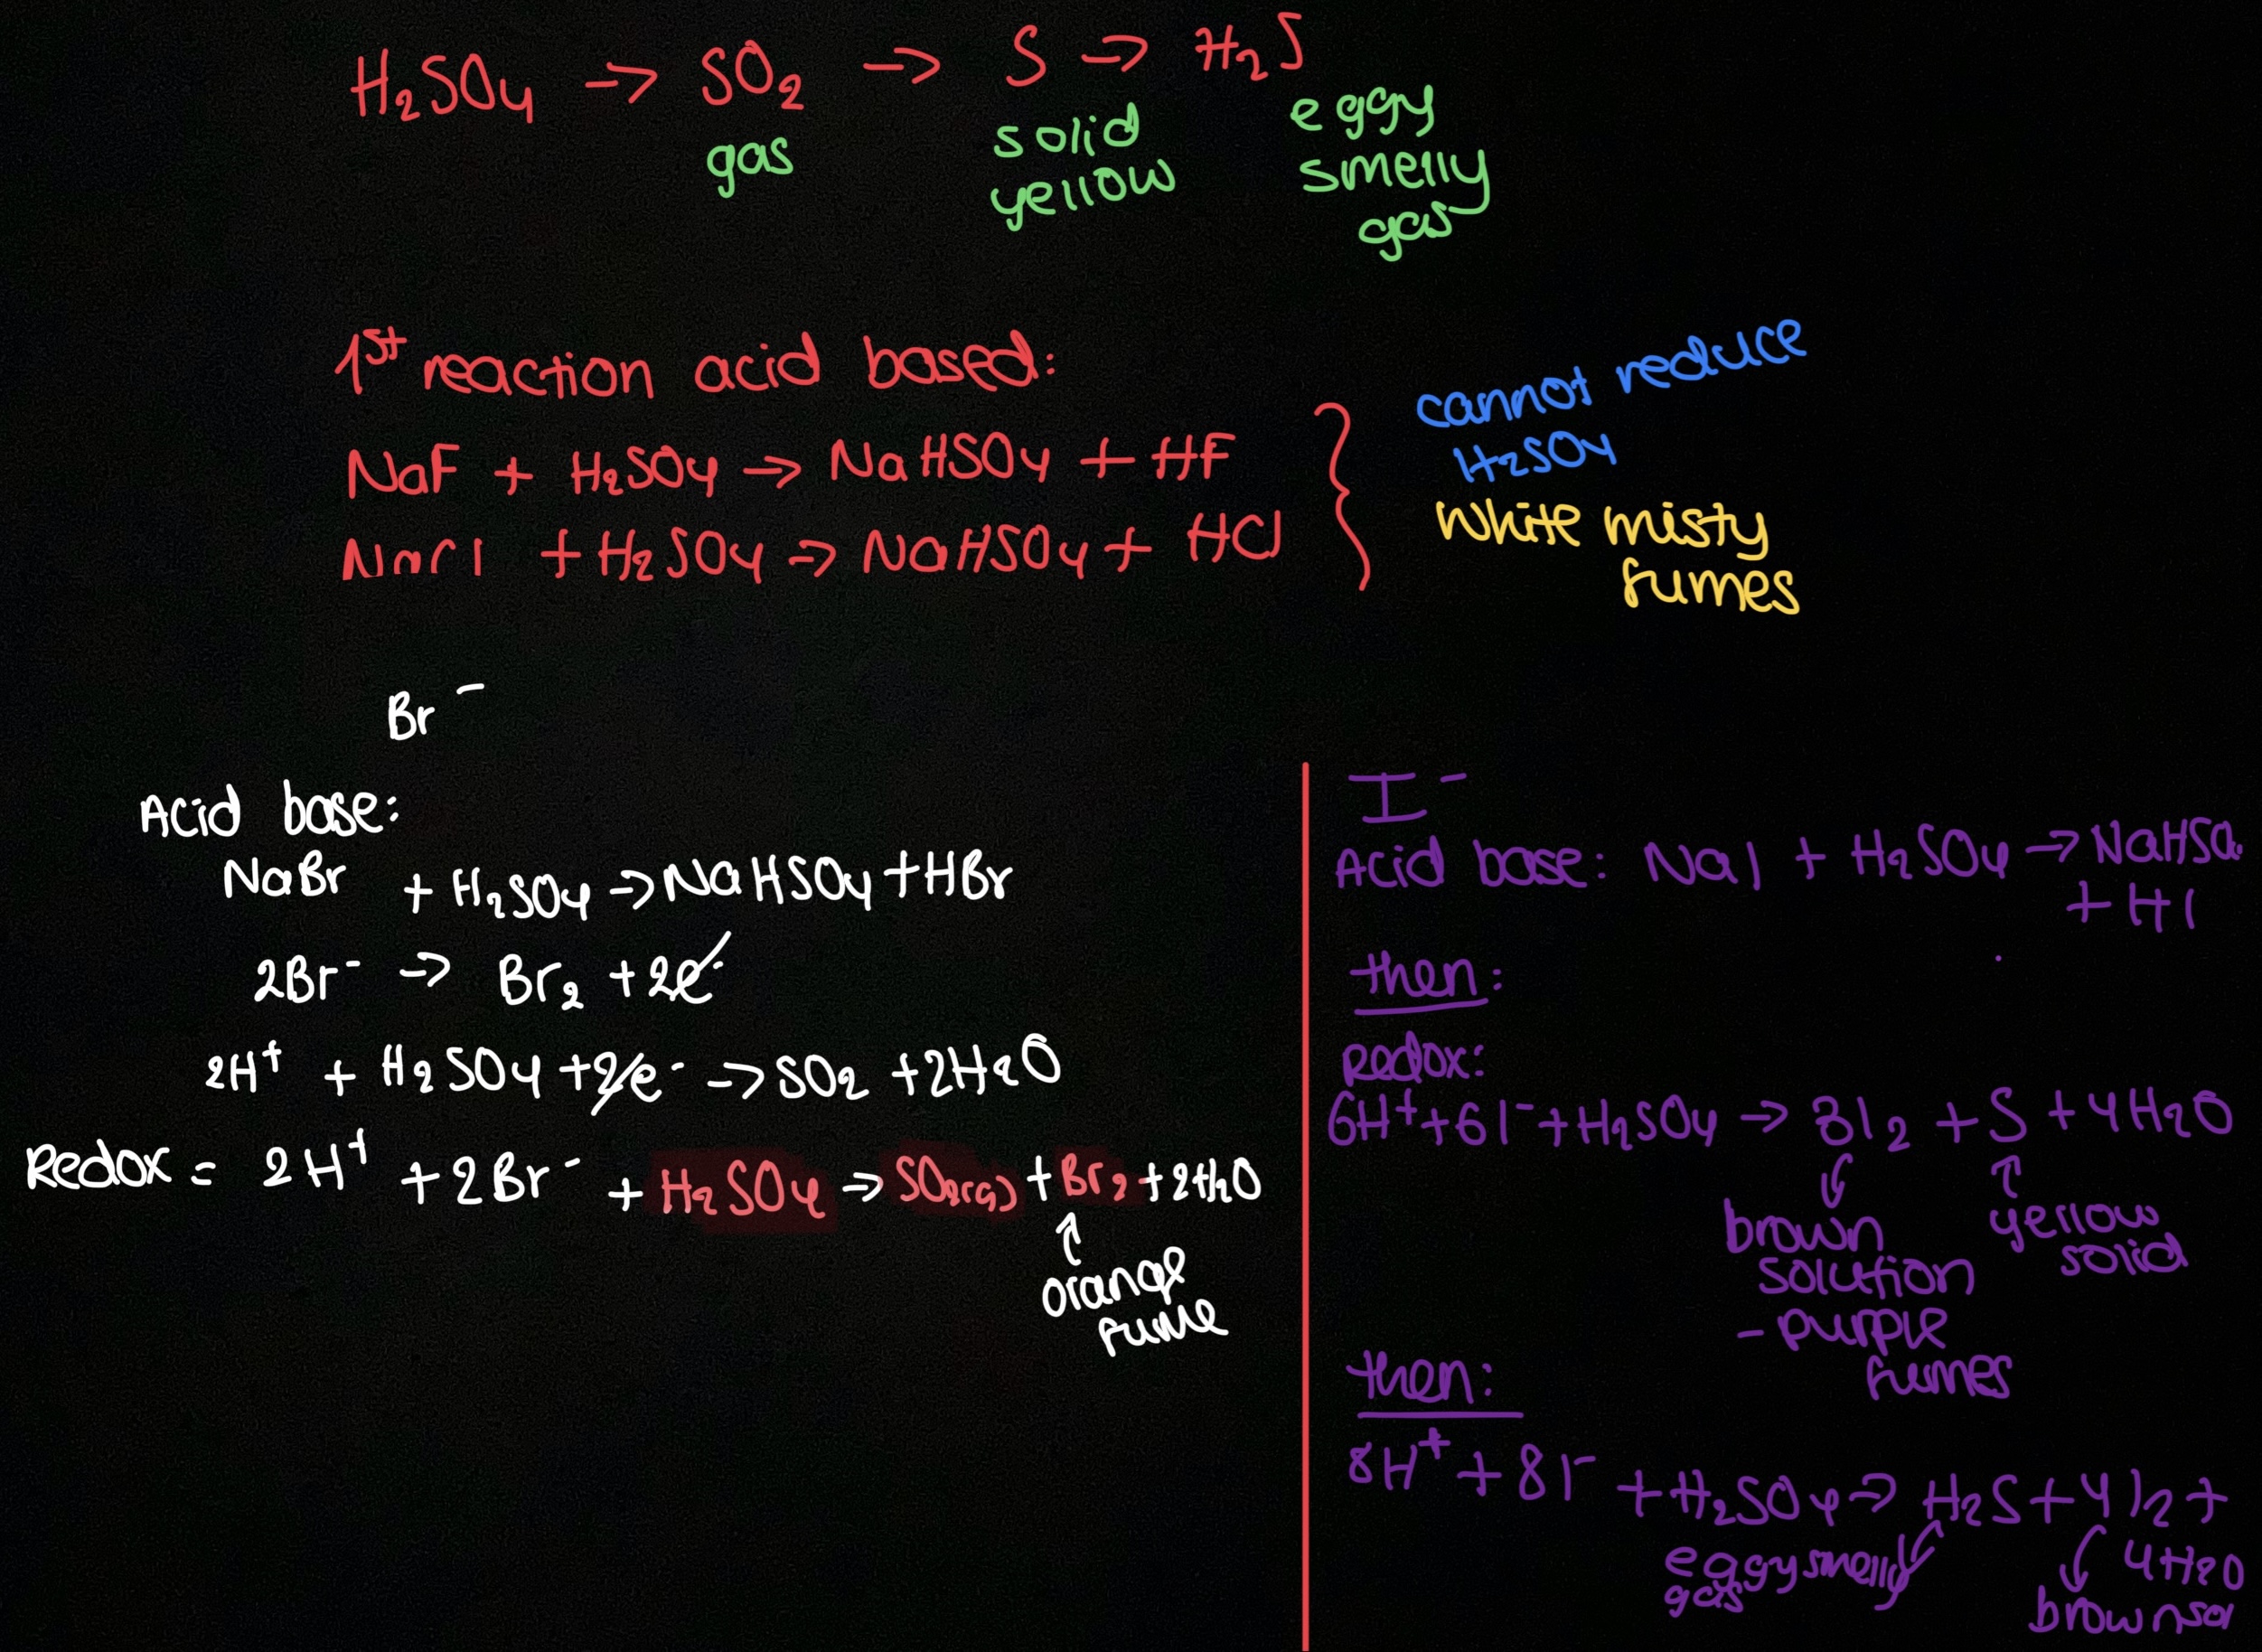 H₂SO₄ → SO₂ → S → H₂S
gas
solid
yellow
eggy
smelly
gas
1st reaction acid based:
NaF + H₂SO₄ → NaHSO₄ + HF
NaCl + H₂SO₄ → NaHSO₄ + HCl
cannot reduce
H₂SO₄
White misty
fumes
Br⁻
Acid base:
NaBr + H₂SO₄ → NaHSO₄ + HBr
2Br⁻ → Br₂ + 2e⁻
2H⁺ + H₂SO₄ + 2e⁻ → SO₂ + 2H₂O
Redox = 2H⁺ + 2Br⁻ + H₂SO₄ → SO₂(g) + Br₂ + 2H₂O
orange
fume
I⁻
Acid base: NaI + H₂SO₄ → NaHSO₄
+ HI
then:
Redox:
6H⁺ + 6I⁻ + H₂SO₄ → 3I₂ + S + 4H₂O
brown
solution
- purple
fumes
yellow
solid
then:
8H⁺ + 8I⁻ + H₂SO₄ → H₂S + 4I₂ +
4H₂O
eggy smelly
gas
brown sol